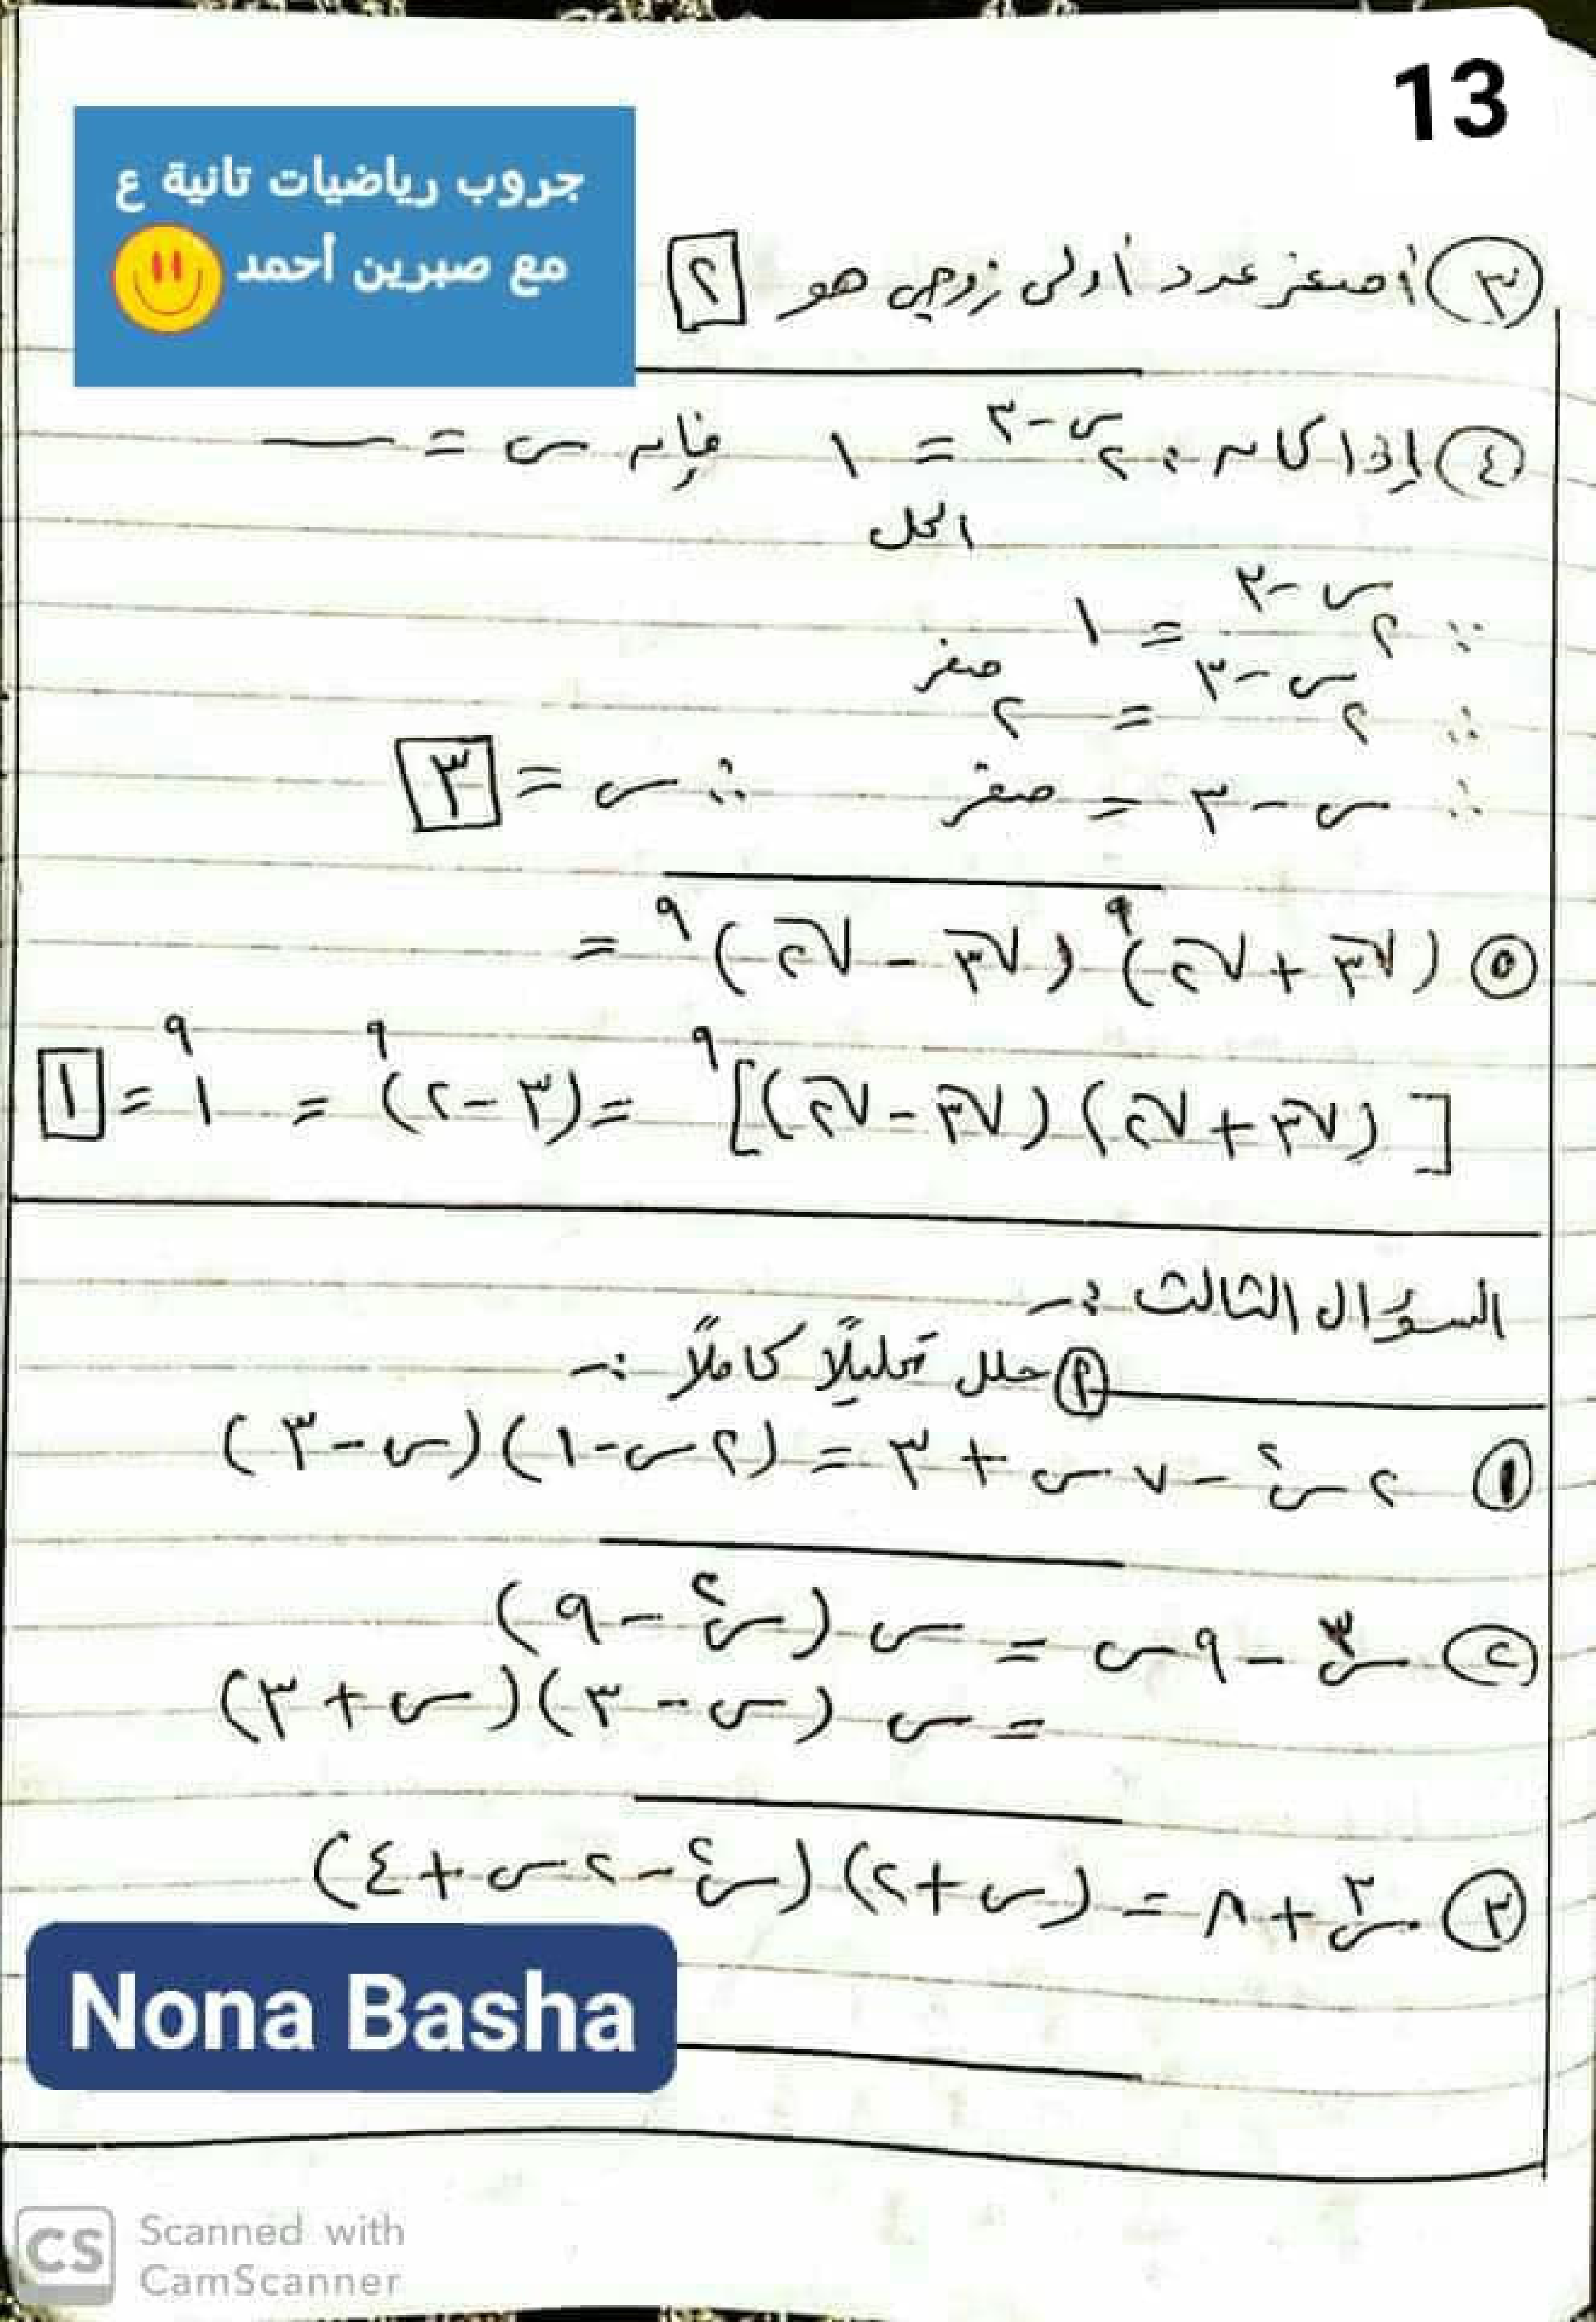 13
جروب رياضيات تانية ع
مع صبرين أحمد
(٣) أصغر عدد أولى زوجي هو [٢]
(٤) إذا كان : ٢^(س-٣) = ١ فإن س = ــــ
الحل
∵ ٢^(س-٣) = ١
∴ ٢^(س-٣) = ٢^صفر
∴ س - ٣ = صفر ∴ س = [٣]
(٥) (√٣ + √٢)^٩ (√٣ - √٢)^٩ =
[(√٣ + √٢) (√٣ - √٢)]^٩ = (٣ - ٢)^٩ = ١^٩ = [١]
السؤال الثالث :-
(٢) حلل تحليلًا كاملًا :-
(١) ٢س^٢ - ٧س + ٣ = (٢س - ١) (س - ٣)
(٢) س^٣ - ٩س = س (س^٢ - ٩)
= س (س - ٣) (س + ٣)
(٣) س^٣ + ٨ = (س + ٢) (س^٢ - ٢س + ٤)
Nona Basha
CS Scanned with
CamScanner